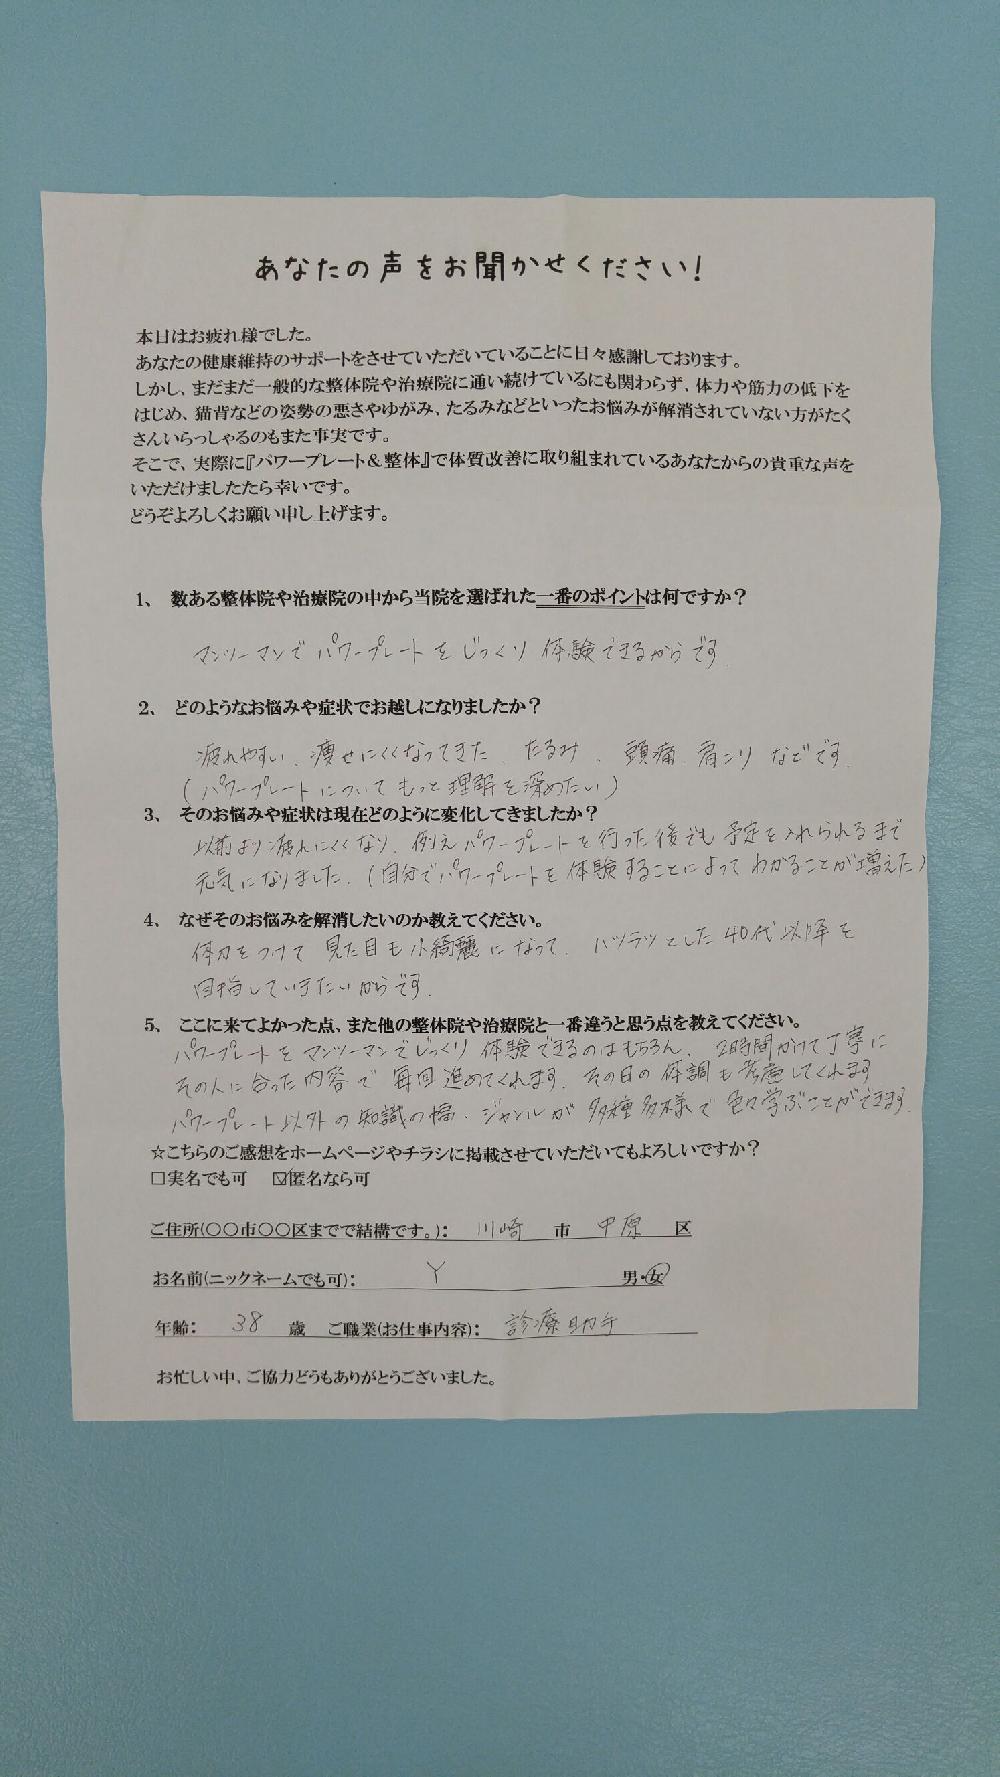 あなたの声をお聞かせください!
本日はお疲れ様でした。
あなたの健康維持のサポートをさせていただいていることに日々感謝しております。
しかし、まだまだ一般的な整体院や治療院に通い続けているにも関わらず、体力や筋力の低下を
はじめ、猫背などの姿勢の悪さやゆがみ、たるみなどといったお悩みが解消されていない方がたく
さんいらっしゃるのもまた事実です。
そこで、実際に『パワープレート&整体』で体質改善に取り組まれているあなたからの貴重な声を
いただけましたたら幸いです。
どうぞよろしくお願い申し上げます。
1、 数ある整体院や治療院の中から当院を選ばれた一番のポイントは何ですか?
マンツーマンでパワープレートをじっくり体験できるからです。
2、 どのようなお悩みや症状でお越しになりましたか?
疲れやすい、痩せにくくなってきた、たるみ、頭痛、肩こりなどです。
(パワープレートについてもっと理解を深めたい)
3、 そのお悩みや症状は現在どのように変化してきましたか?
以前より疲れにくくなり、例えパワープレートを行った後でも予定を入れられるまで
元気になりました。(自分でパワープレートを体験することによってわかることが増えた)
4、 なぜそのお悩みを解消したいのか教えてください。
体力をつけて見た目も小綺麗になって、ハツラツとした40代以降を
目指していきたいからです。
5、 ここに来てよかった点、また他の整体院や治療院と一番違うと思う点を教えてください。
パワープレートをマンツーマンでじっくり体験できるのはもちろん、2時間かけて丁寧に
その人に合った内容で毎回進めてくれます。その日の体調も考慮してくれます
パワープレート以外の知識の幅・ジャンルが多種多様で色々学ぶことができます。
☆こちらのご感想をホームページやチラシに掲載させていただいてもよろしいですか?
□実名でも可 ☑匿名なら可
ご住所(〇〇市〇〇区までで結構です。): 川崎 市 中原 区
お名前(ニックネームでも可): Y 男・女
年齢: 38 歳 ご職業(お仕事内容): 診療助手
お忙しい中、ご協力どうもありがとうございました。